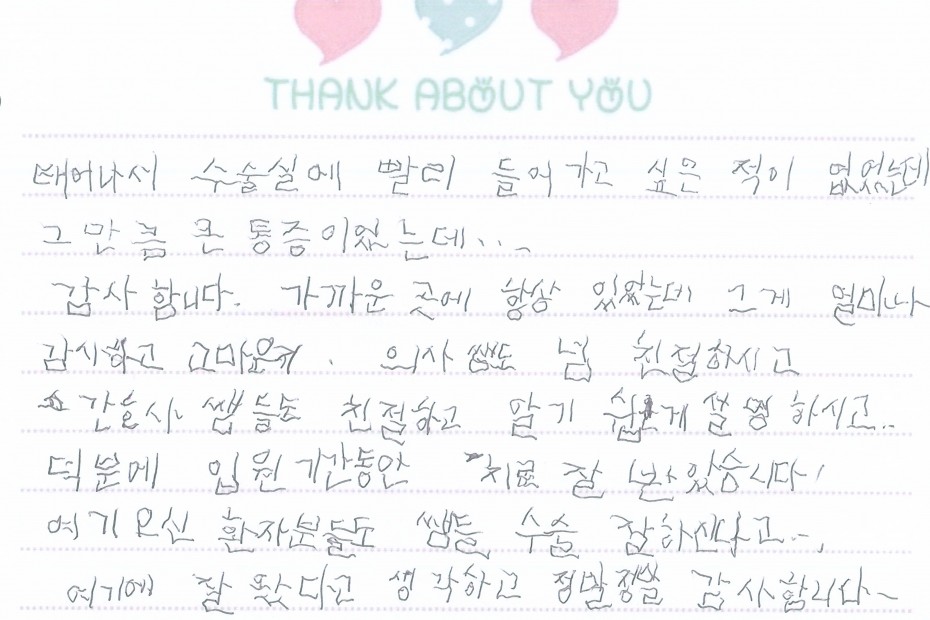 THANK ABOUT YOU
태어나서 수술실에 빨리 들어가고 싶은 적이 없었는데
그만큼 큰 통증이었는데...
감사합니다. 가까운 곳에 항상 있었는데 그게 얼마나
감사하고 고마운지. 의사 쌤도 넘 친절하시고
간호사 쌤들도 친절하고 알기 쉽게 설명 하시고..
덕분에 입원기간동안 치료 잘 받았습니다!
여기오신 환자분들도 쌤들 수술 잘하신다고..,
여기에 잘 왔다고 생각하고 정말정말 감사합니다~